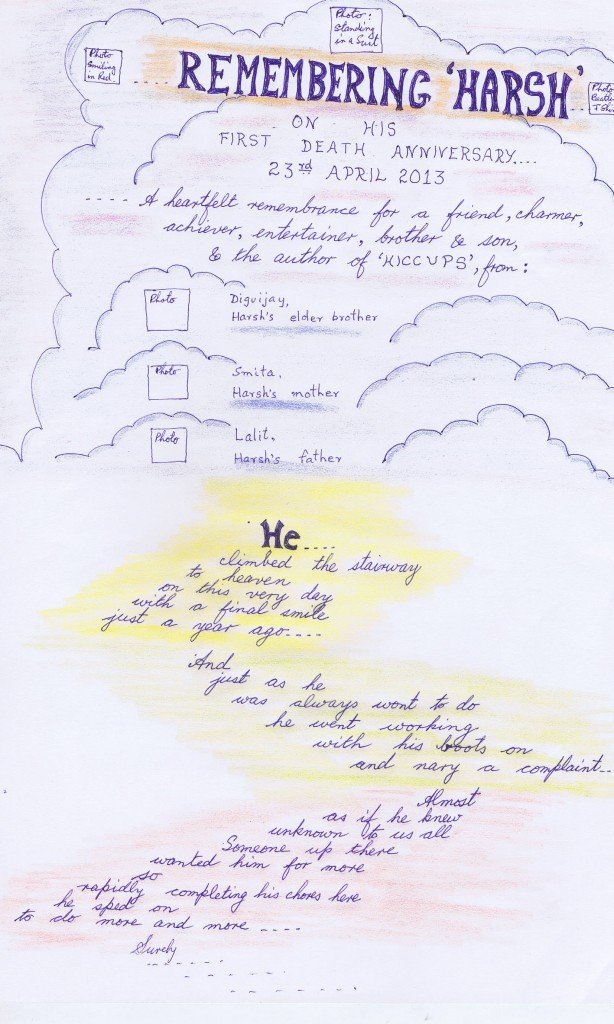 Photo:
Standing
in a Suit
Photo
Smiling
in Red
.....REMEMBERING 'HARSH'...
Photo
T Shi
ON HIS
FIRST DEATH ANNIVERSARY....
23rd APRIL 2013
..... A heartfelt remembrance for a friend, charmer,
achiever, entertainer, brother & son,
& the author of 'HICCUPS', from:
Photo
Diguijay,
Harsh's elder brother
Photo
Smita,
Harsh's mother
Photo
Lalit,
Harsh's father
He....
climbed the stairway
to heaven
on this very day
with a final smile
just a year ago....
And
just as he
was always wont to do
he went working
with his boots on
and nary a complaint..
Almost
as if he knew
unknown to us all
Someone up there
wanted him for more
so
rapidly completing his chores here
he sped on
to do more and more ....
Surely
......
......
.......